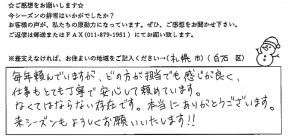 ☆ご感想をお願いします☆
今シーズンの排雪はいかがでしたか？
お客様の声が、私たちの原動力になっています。ぜひ、ご感想をお聞かせ下さい。
ご返信は郵送またはFAX(011-879-1951)にてお願い致します。
※差支えなければ、お住まいの地域をご記入ください→(札幌市)(白石区)
毎年頼んでいますが、どの方が担当でも感じが良く、
仕事もとても丁寧で安心して頼めています。
なくてはならない存在です。本当にありがとうございます。
来シーズンもよろしくお願いいたします!!